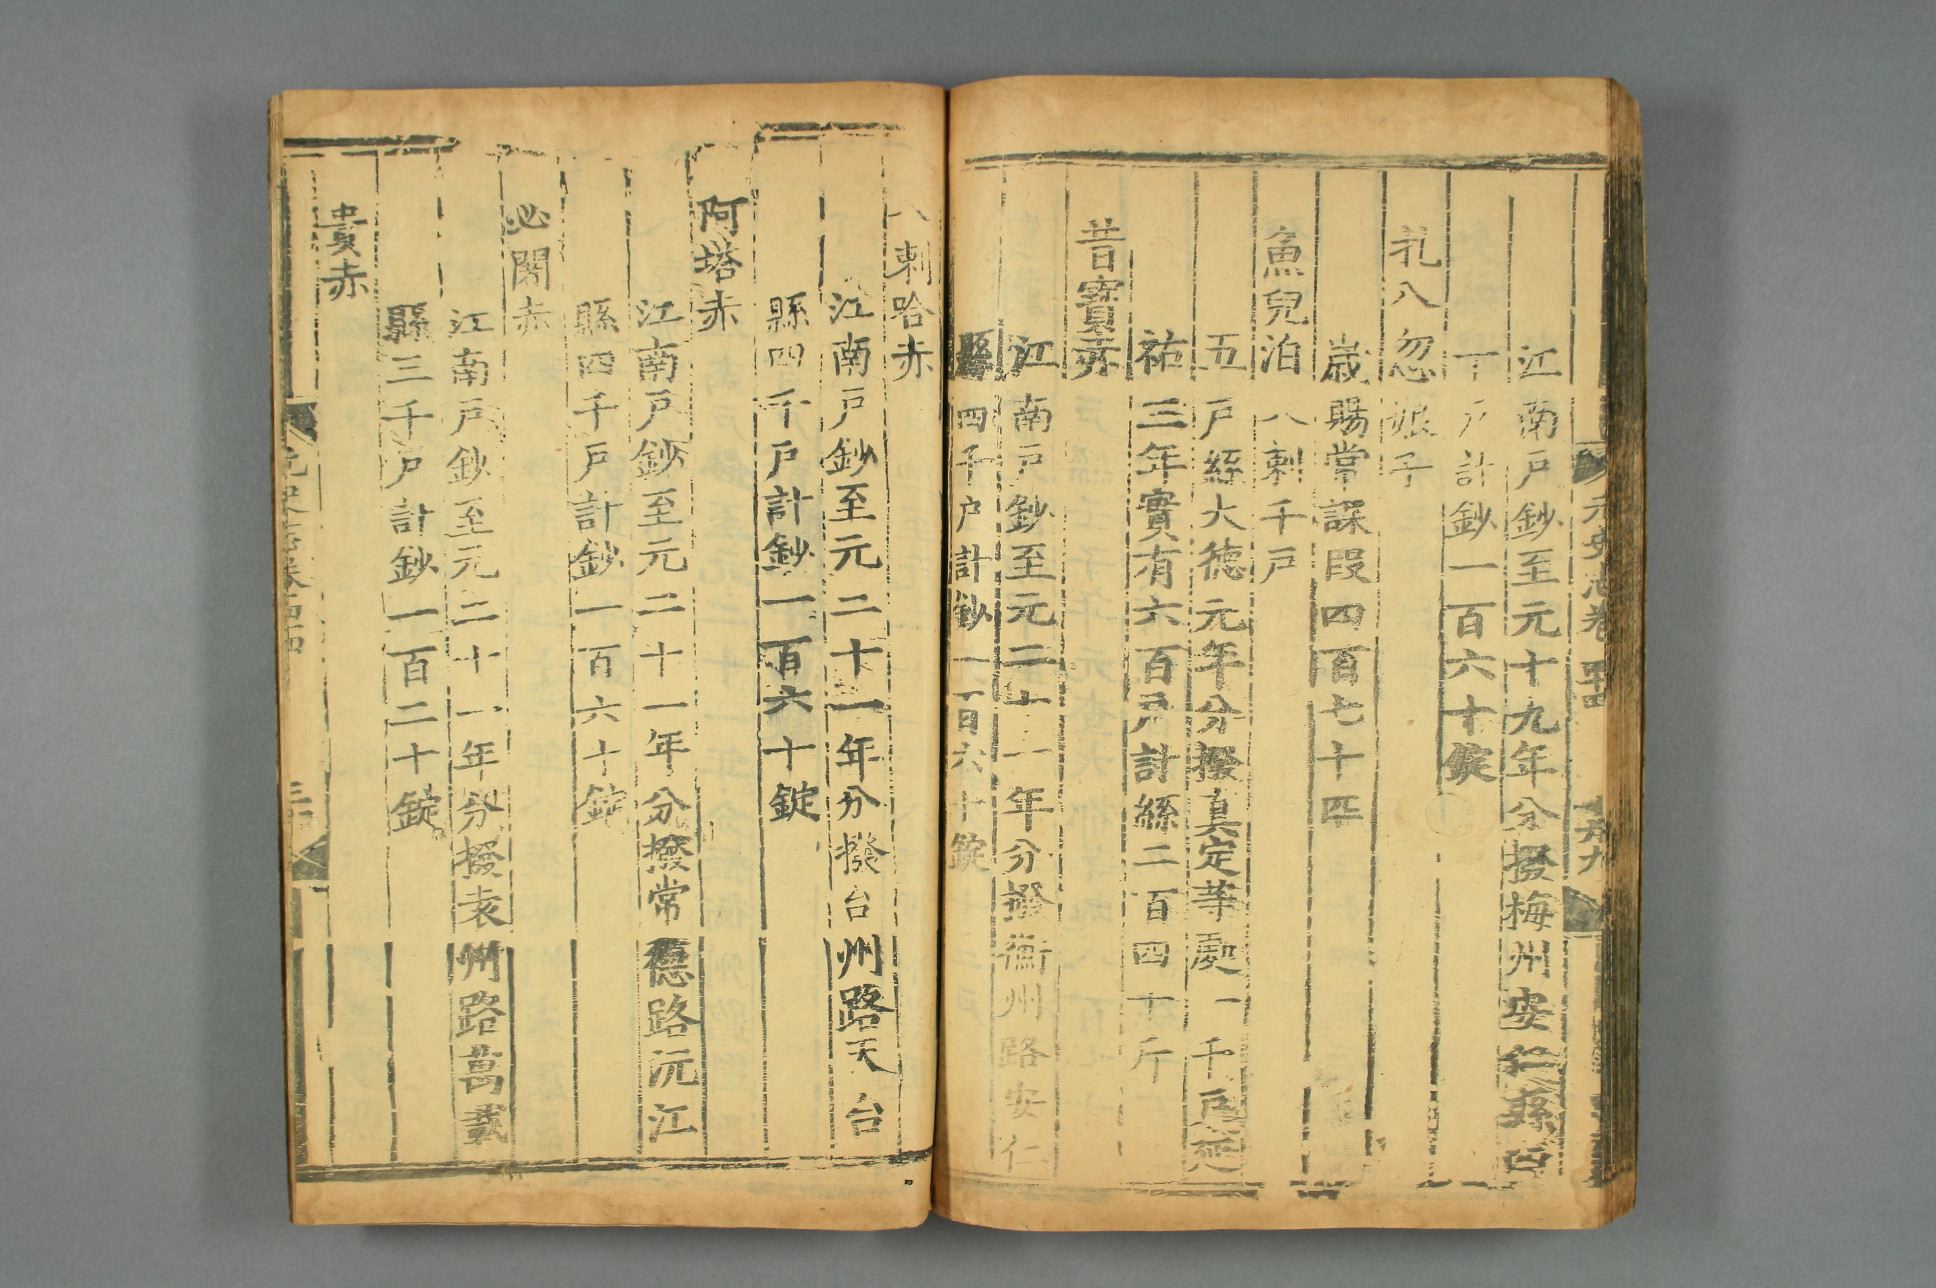 元史志卷 四十四
江南戶鈔至元十九年分撥梅州安仁縣四
千戶計鈔一百六十錠
扎八忽娘子
歲賜常課段四百七十匹
魚兒泊八剌千戶
五戶絲大德元年分撥真定等處一千戶延
祐三年實有六百戶計絲二百四十斤
昔寶赤
江南戶鈔至元二十一年分撥衡州路安仁
縣四千戶計鈔一百六十錠
八剌哈赤
江南戶鈔至元二十一年分撥台州路天台
縣四千戶計鈔一百六十錠
阿塔赤
江南戶鈔至元二十一年分撥常德路沅江
縣四千戶計鈔一百六十錠
必闍赤
江南戶鈔至元二十一年分撥袁州路萬載
縣三千戶計鈔一百二十錠
貴赤
元史志卷四十四
三十